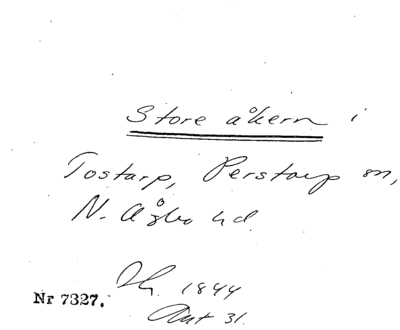 Store åkern i
Tostarp, Perstorp sn,
N. Åsbo hd.
1844
Nr 7327.
Akt 31.